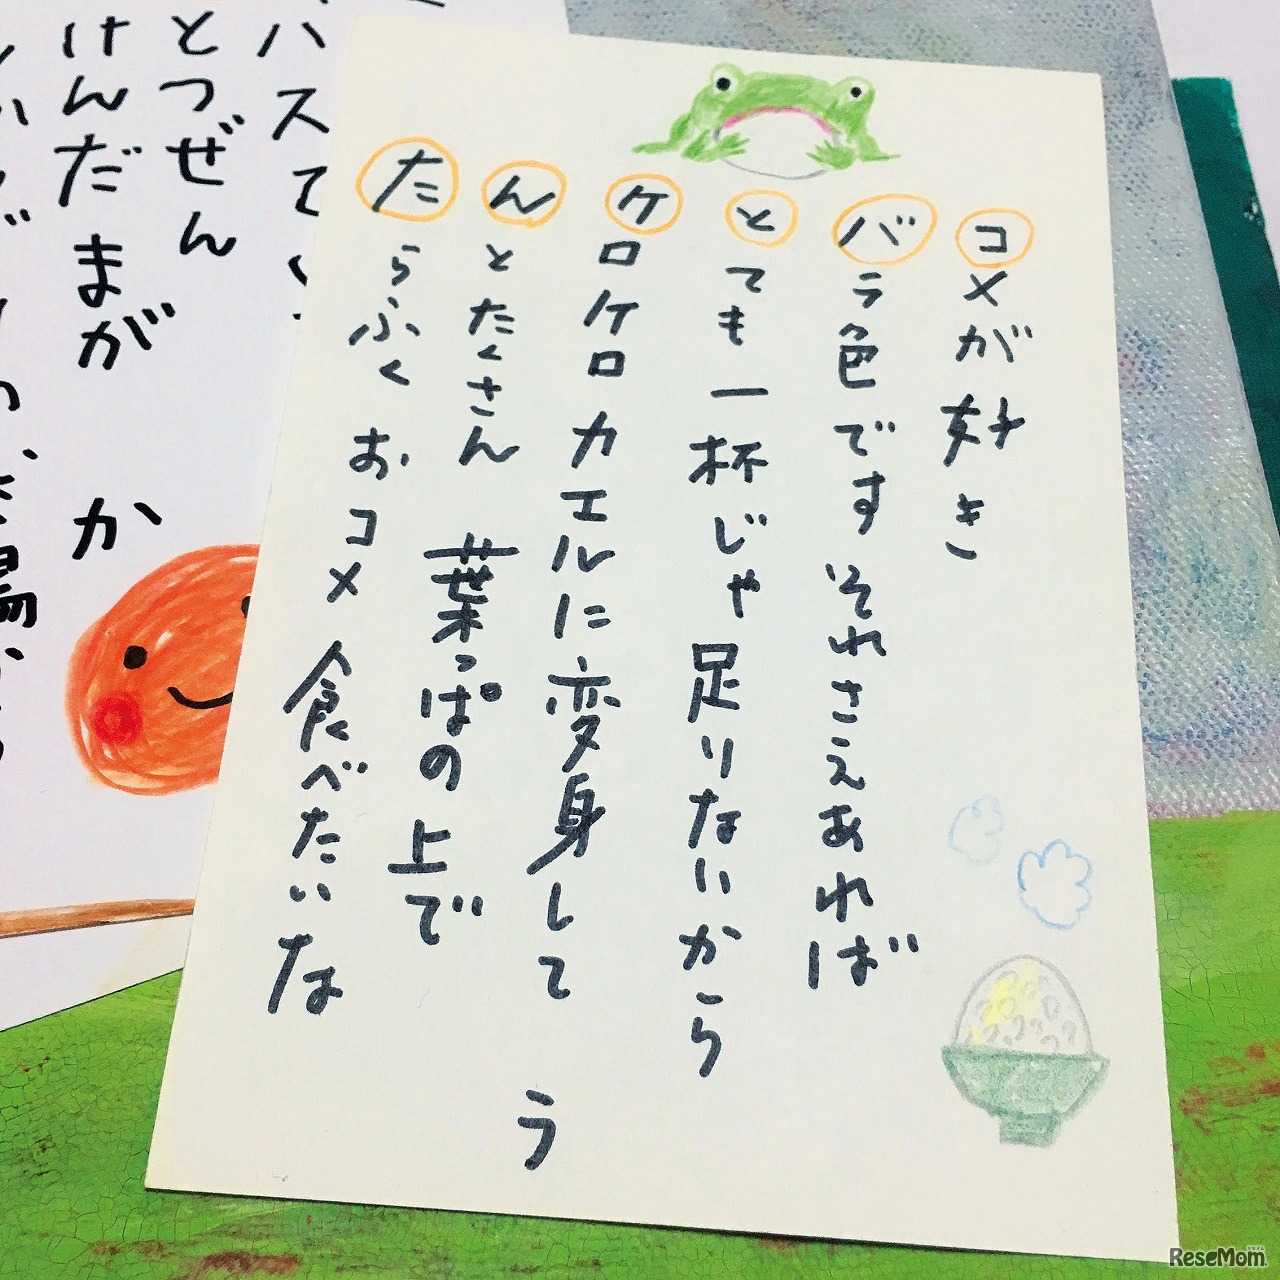 コメが好き
バラ色です それさえあれば
とても一杯じゃ足りないから
ケロケロカエルに変身して
んとたくさん 葉っぱの上で
たらふくおコメ食べたいな
う
とつぜん
けんだ まが
か
ReseMom
リセマム